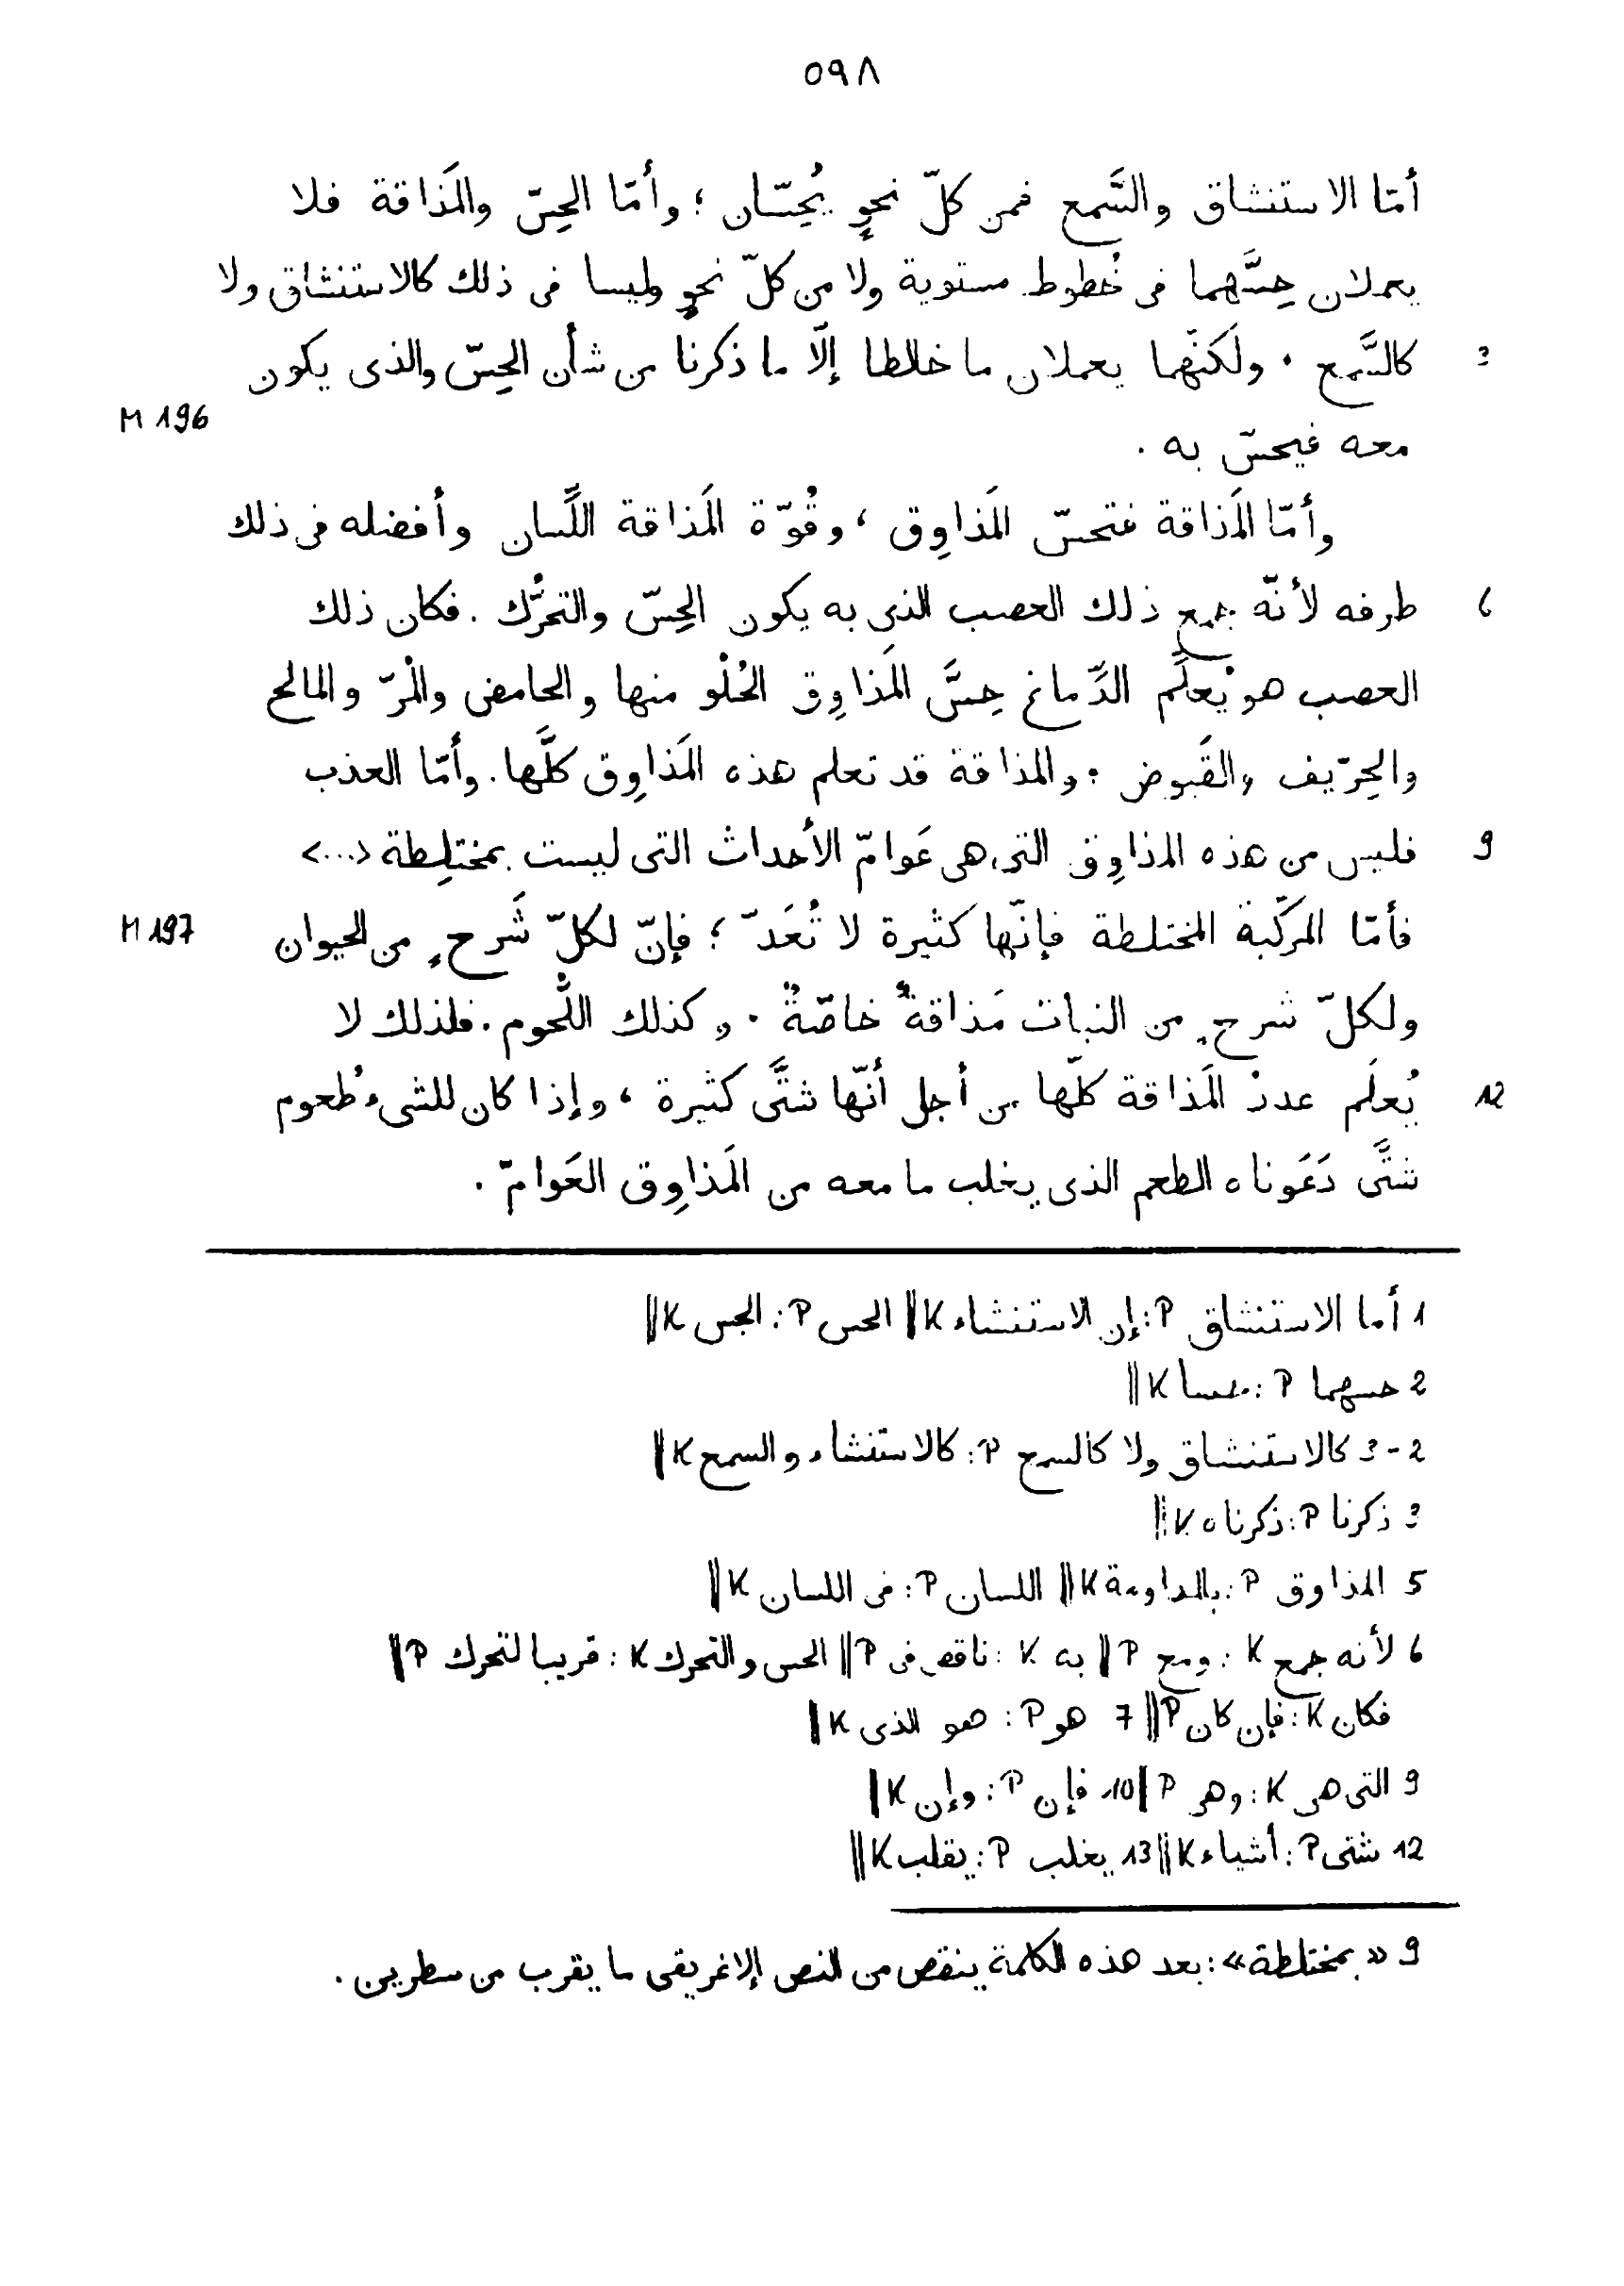 ٥٩٨
أمّا الاستنشاق والسَّمع فمن كلّ نحوٍ يُحِسّان ؛ وأمّا الحِسّ والمَذاقة فلا
يعملان حِسَّهما فى خُطوط مستوية ولا من كلّ نحوٍ وليسا فى ذلك كالاستنشاق ولا
3 كالسَّمع . ولَكنّهما يعملان ما خالطا إلّا ما ذكرنا من شأن الحِسّ والذى يكون
M 196
معه فيحسّ به .
وأمّا المَذاقة فتحسّ المَذاوِق ، وقُوّة المَذاقة اللِّسان وأفضله فى ذلك
6 طرفه لأنّه جمع ذلك العصب الذى به يكون الحِسّ والتحرُّك . فكان ذلك
العصب هو يُعلِّم الدَّماغ حِسَّ المَذاوِق الحُلْو منها والحامض والمُرّ والمالح
والحِرّيف والقَبوض ؛ والمذاقة قد تعلم هذه المَذاوِق كلَّها . وأمّا العذب
9 فليس من هذه المذاوِق التى هى عَوامّ الأحداث التى ليست بمختلِطة <...>
M 197 فأمّا المركّبة المختلطة فإنّها كثيرة لا تُعَدّ ؛ فإنّ لكلّ شَرحٍ من الحيوان
ولكلّ شرحٍ من النبات مَذاقةٌ خاصّةٌ . وكذلك اللُّحوم . فلذلك لا
12 يُعلَم عددُ المَذاقة كلّها من أجل أنّها شتَّى كثيرة ، وإذا كان للشىء طُعوم
شتَّى دَعَوناه الطعم الذى يغلب ما معه من المَذاوِق العَوامّ .
1 أما الاستنشاق P : إن الاستنشاء K || الحس P : الجس K ||
2 حسهما P : حسا K ||
2-3 كالاستنشاق ولا كالسمع P : كالاستنشاء والسمع K ||
3 ذكرنا P : ذكرناه K ||
5 المذاوق P : بالمداومة K || اللسان P : فى اللسان K ||
6 لأنه جمع K : ومع P || به K : ناقص فى P || الحس والتحرك K : قريبا لتحرك P ||
فكان K : فإن كان P || 7 هو P : هو الذى K ||
9 التى هى K : وهى P || 10 فإن P : وإن K ||
12 شتى P : أشياء K || 13 يغلب P : يقلب K ||
9 «بمختلطة» : بعد هذه الكلمة ينقص من النص الإغريقى ما يقرب من سطرين .